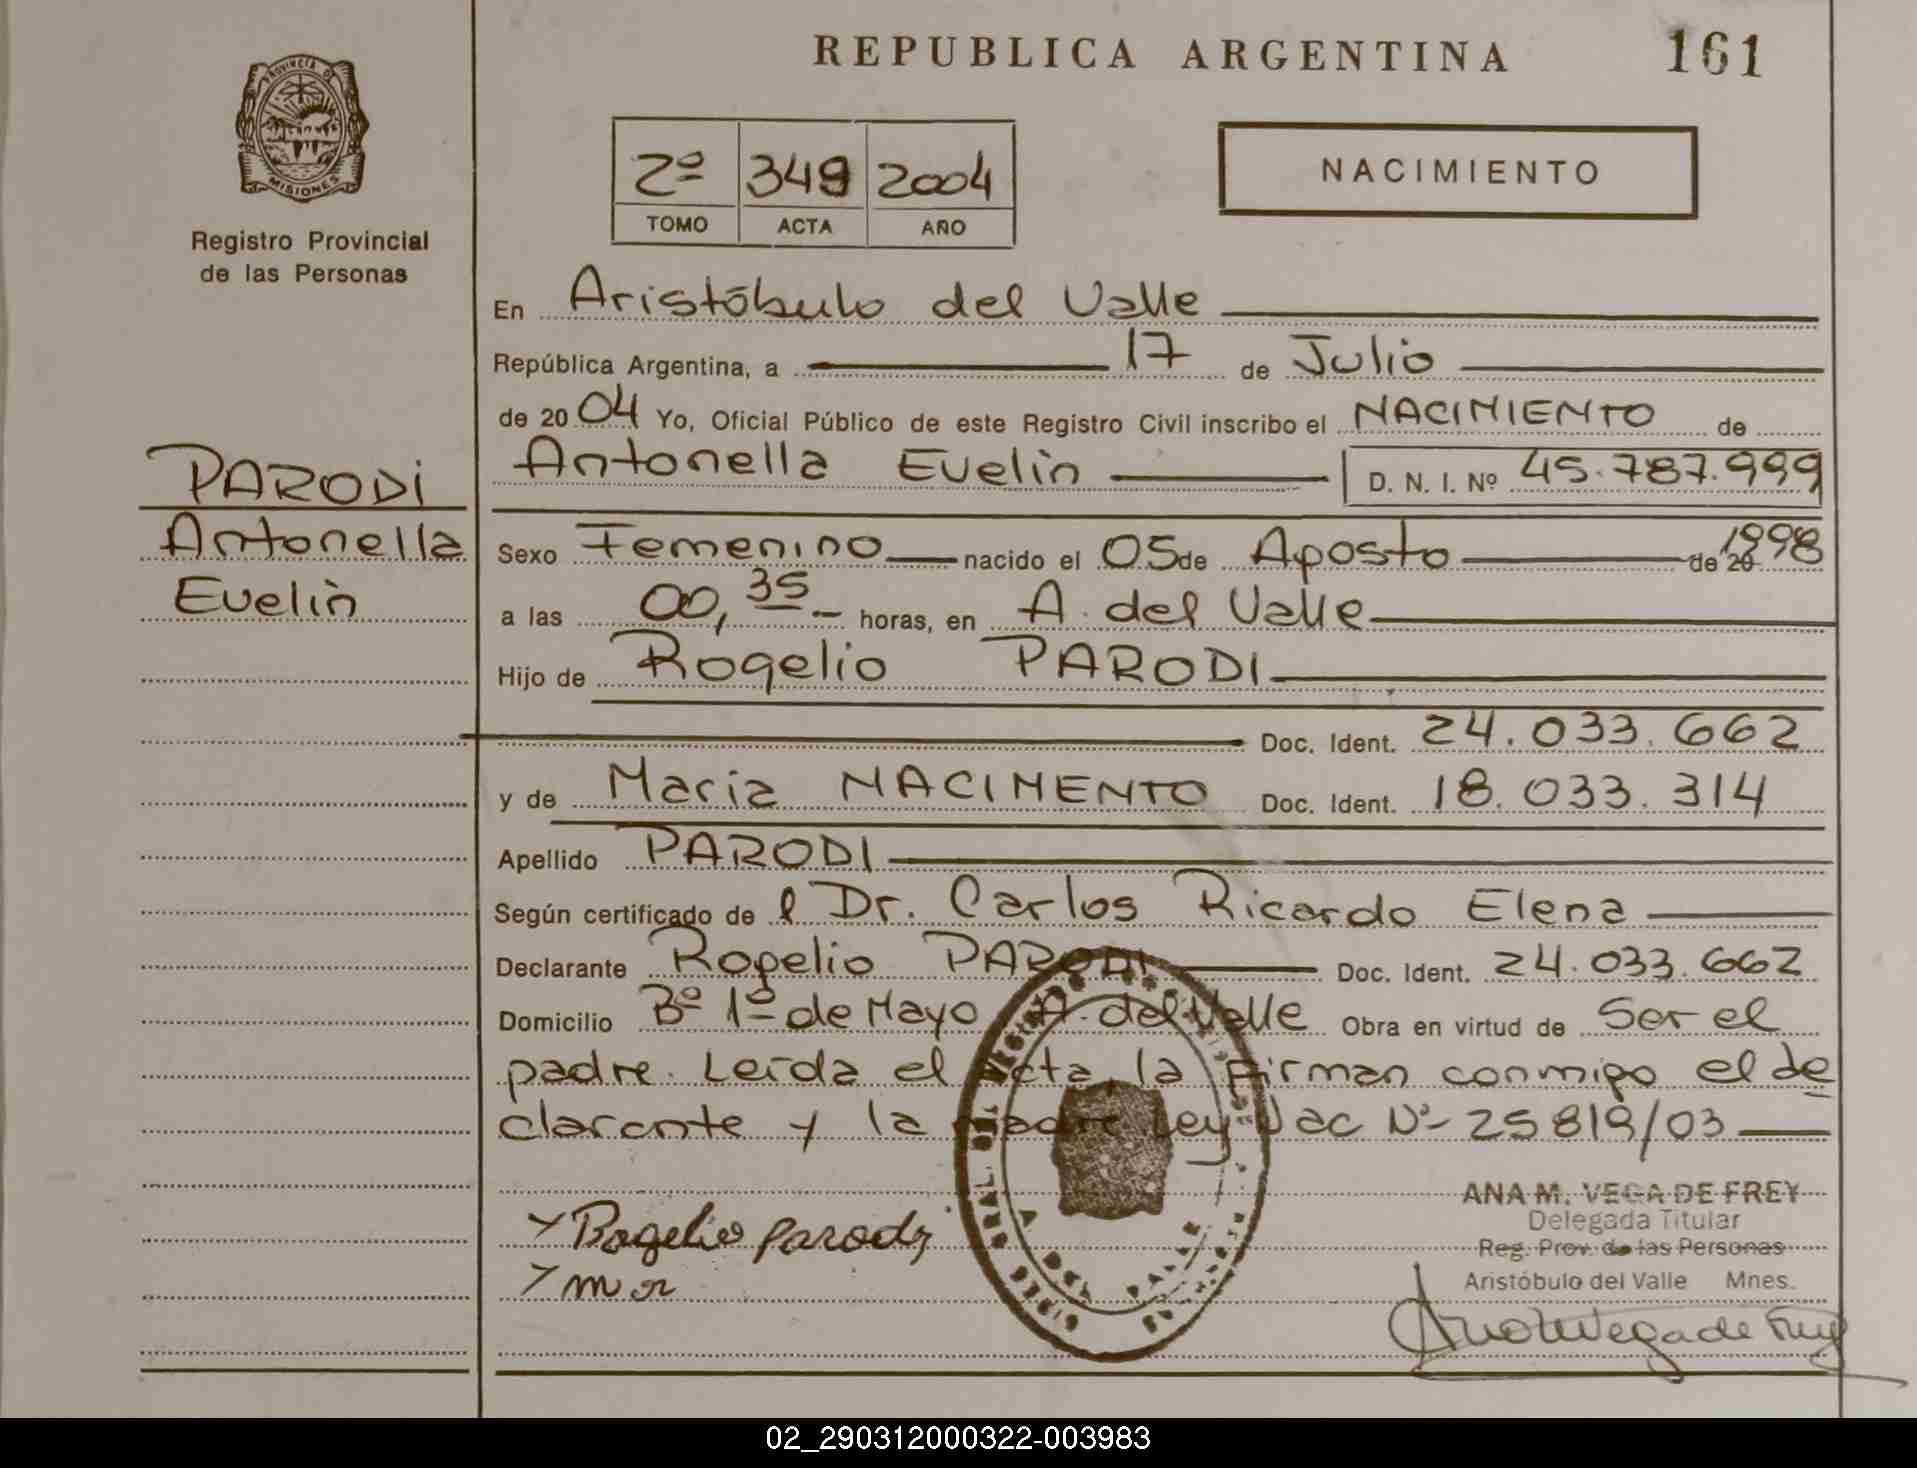 REPUBLICA ARGENTINA 161
PROVINCIA DE
MISIONES
Registro Provincial
de las Personas
2º 349 2004
TOMO ACTA AÑO
NACIMIENTO
En Aristóbulo del Valle
República Argentina, a 17 de Julio
de 2004 Yo, Oficial Público de este Registro Civil inscribo el NACIMIENTO de
Antonella Evelin D. N. I. Nº 45.787.999
PARODI
Antonella
Evelin
Sexo Femenino nacido el 05 de Agosto de 20 1998
a las 00,35 horas, en A. del Valle
Hijo de Rogelio PARODI
Doc. Ident. 24.033.662
y de Maria NACIMENTO Doc. Ident. 18.033.314
Apellido PARODI
Según certificado de l Dr. Carlos Ricardo Elena
Declarante Rogelio PARODI Doc. Ident. 24.033.662
Domicilio Bº 1º de Mayo A. del Valle Obra en virtud de Ser el
padre. Leída el acta, la firman conmigo el de
clarante y la madre Ley Nac Nº 25819/03
ANA M. VEGA DE FREY
Delegada Titular
Reg. Prov. de las Personas
Aristóbulo del Valle Mnes.
Rogelio Parody
m n
02_290312000322-003983